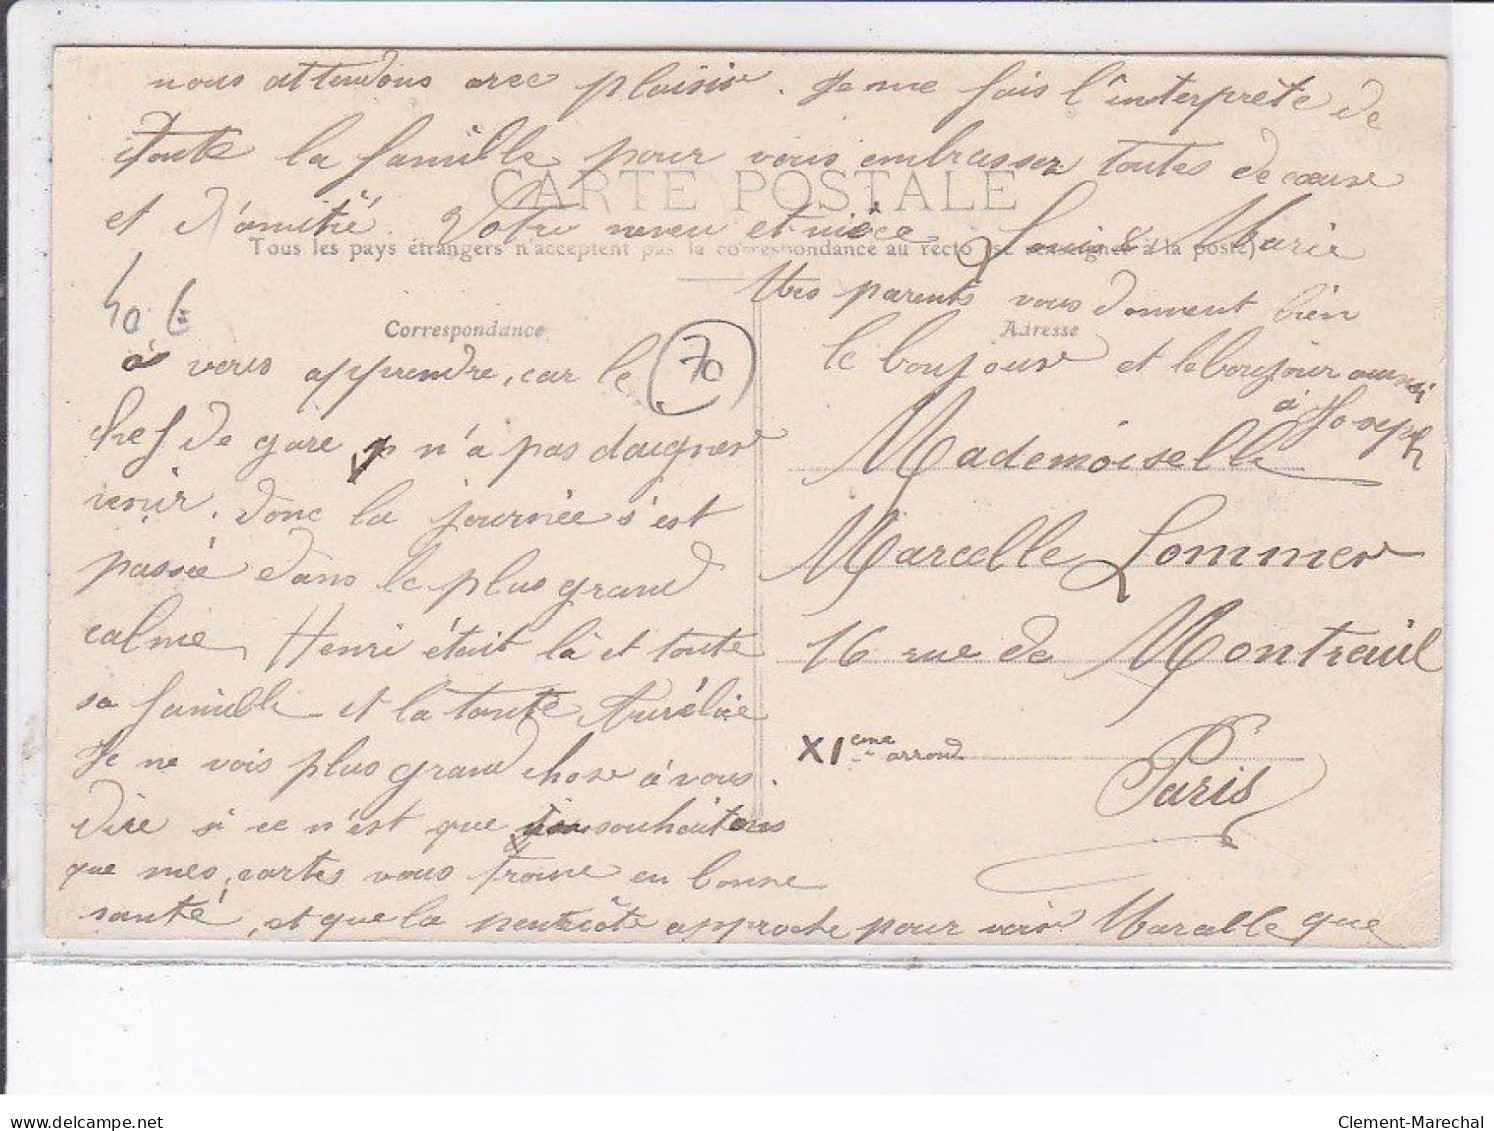 à vous apprendre, car le
chef de gare n'a pas daigner
venir. donc la journée s'est
passée dans le plus grand
calme, Henri était là et toute
sa famille et la tante Aurélie
Je ne vois plus grand chose à vous
dire si ce n'est que souhaitons
que mes cartes vous trouve en bonne
santé, et que la pentecôte approche pour voir Marcelle que
nous attendons avec plaisir. Je me fais l'interprète de
toute la famille pour vous embrasser toutes de cœur
et d'amitié. Votre neveu et nièce Louis & Marie
Mes parents vous donnent bien
le bonjour et le bonjour aussi
à Joseph
CARTE POSTALE
Tous les pays étrangers n'acceptent pas la correspondance au recto (se renseigner à la poste)
Correspondance
Adresse
40 E
70
Mademoiselle
Marcelle Lommer
16 rue de Montreuil
XIeme arrond
Paris
www.delcampe.net
Clement-Marechal